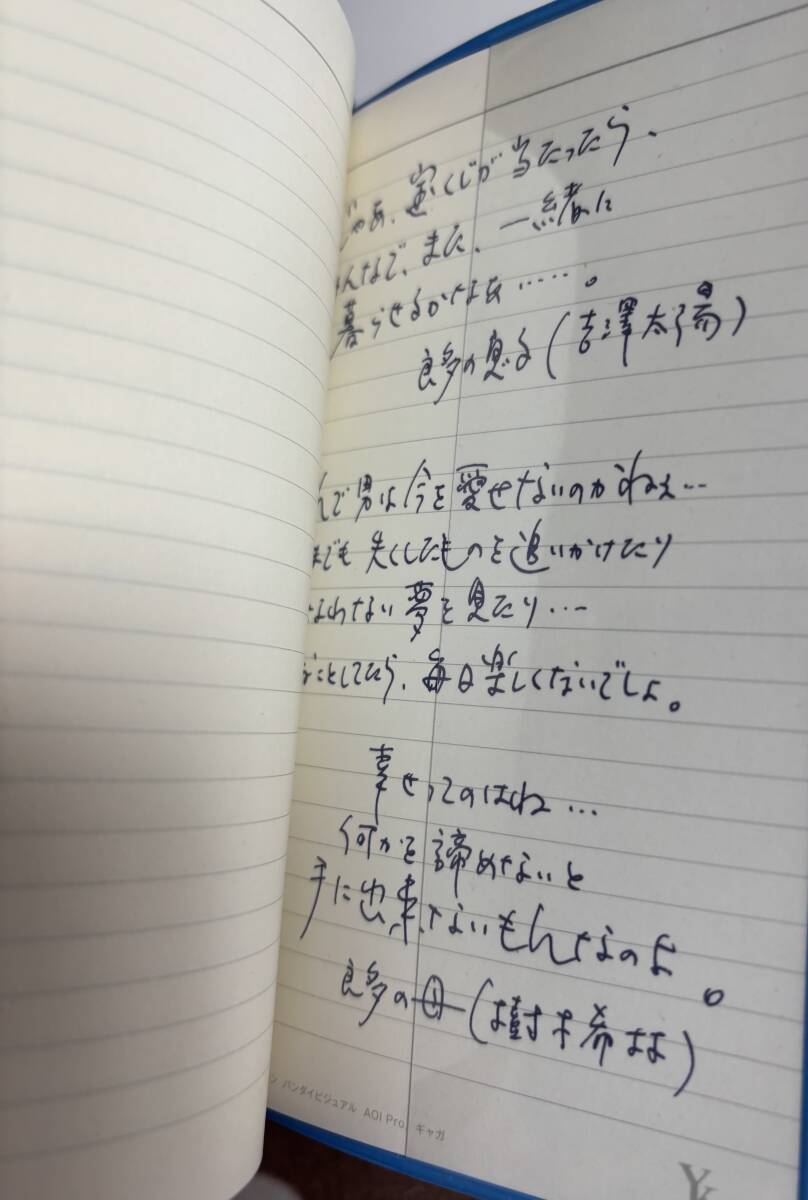 じゃあ、宝くじが当たったら、
みんなで、また、一緒に
暮らせるかなあ‥‥‥。
良多の息子(吉澤太陽)
んで男は今を愛せないのかねぇ…
までも失くしたものを追いかけたり
なわない夢を見たり…
なことしてたら、毎日楽しくないでしょ。
幸せってのはね…
何かを諦めないと
手に出来ないもんなのよ。
良多の母(樹木希林)
ン バンダイビジュアル AOI Pro. ギャガ